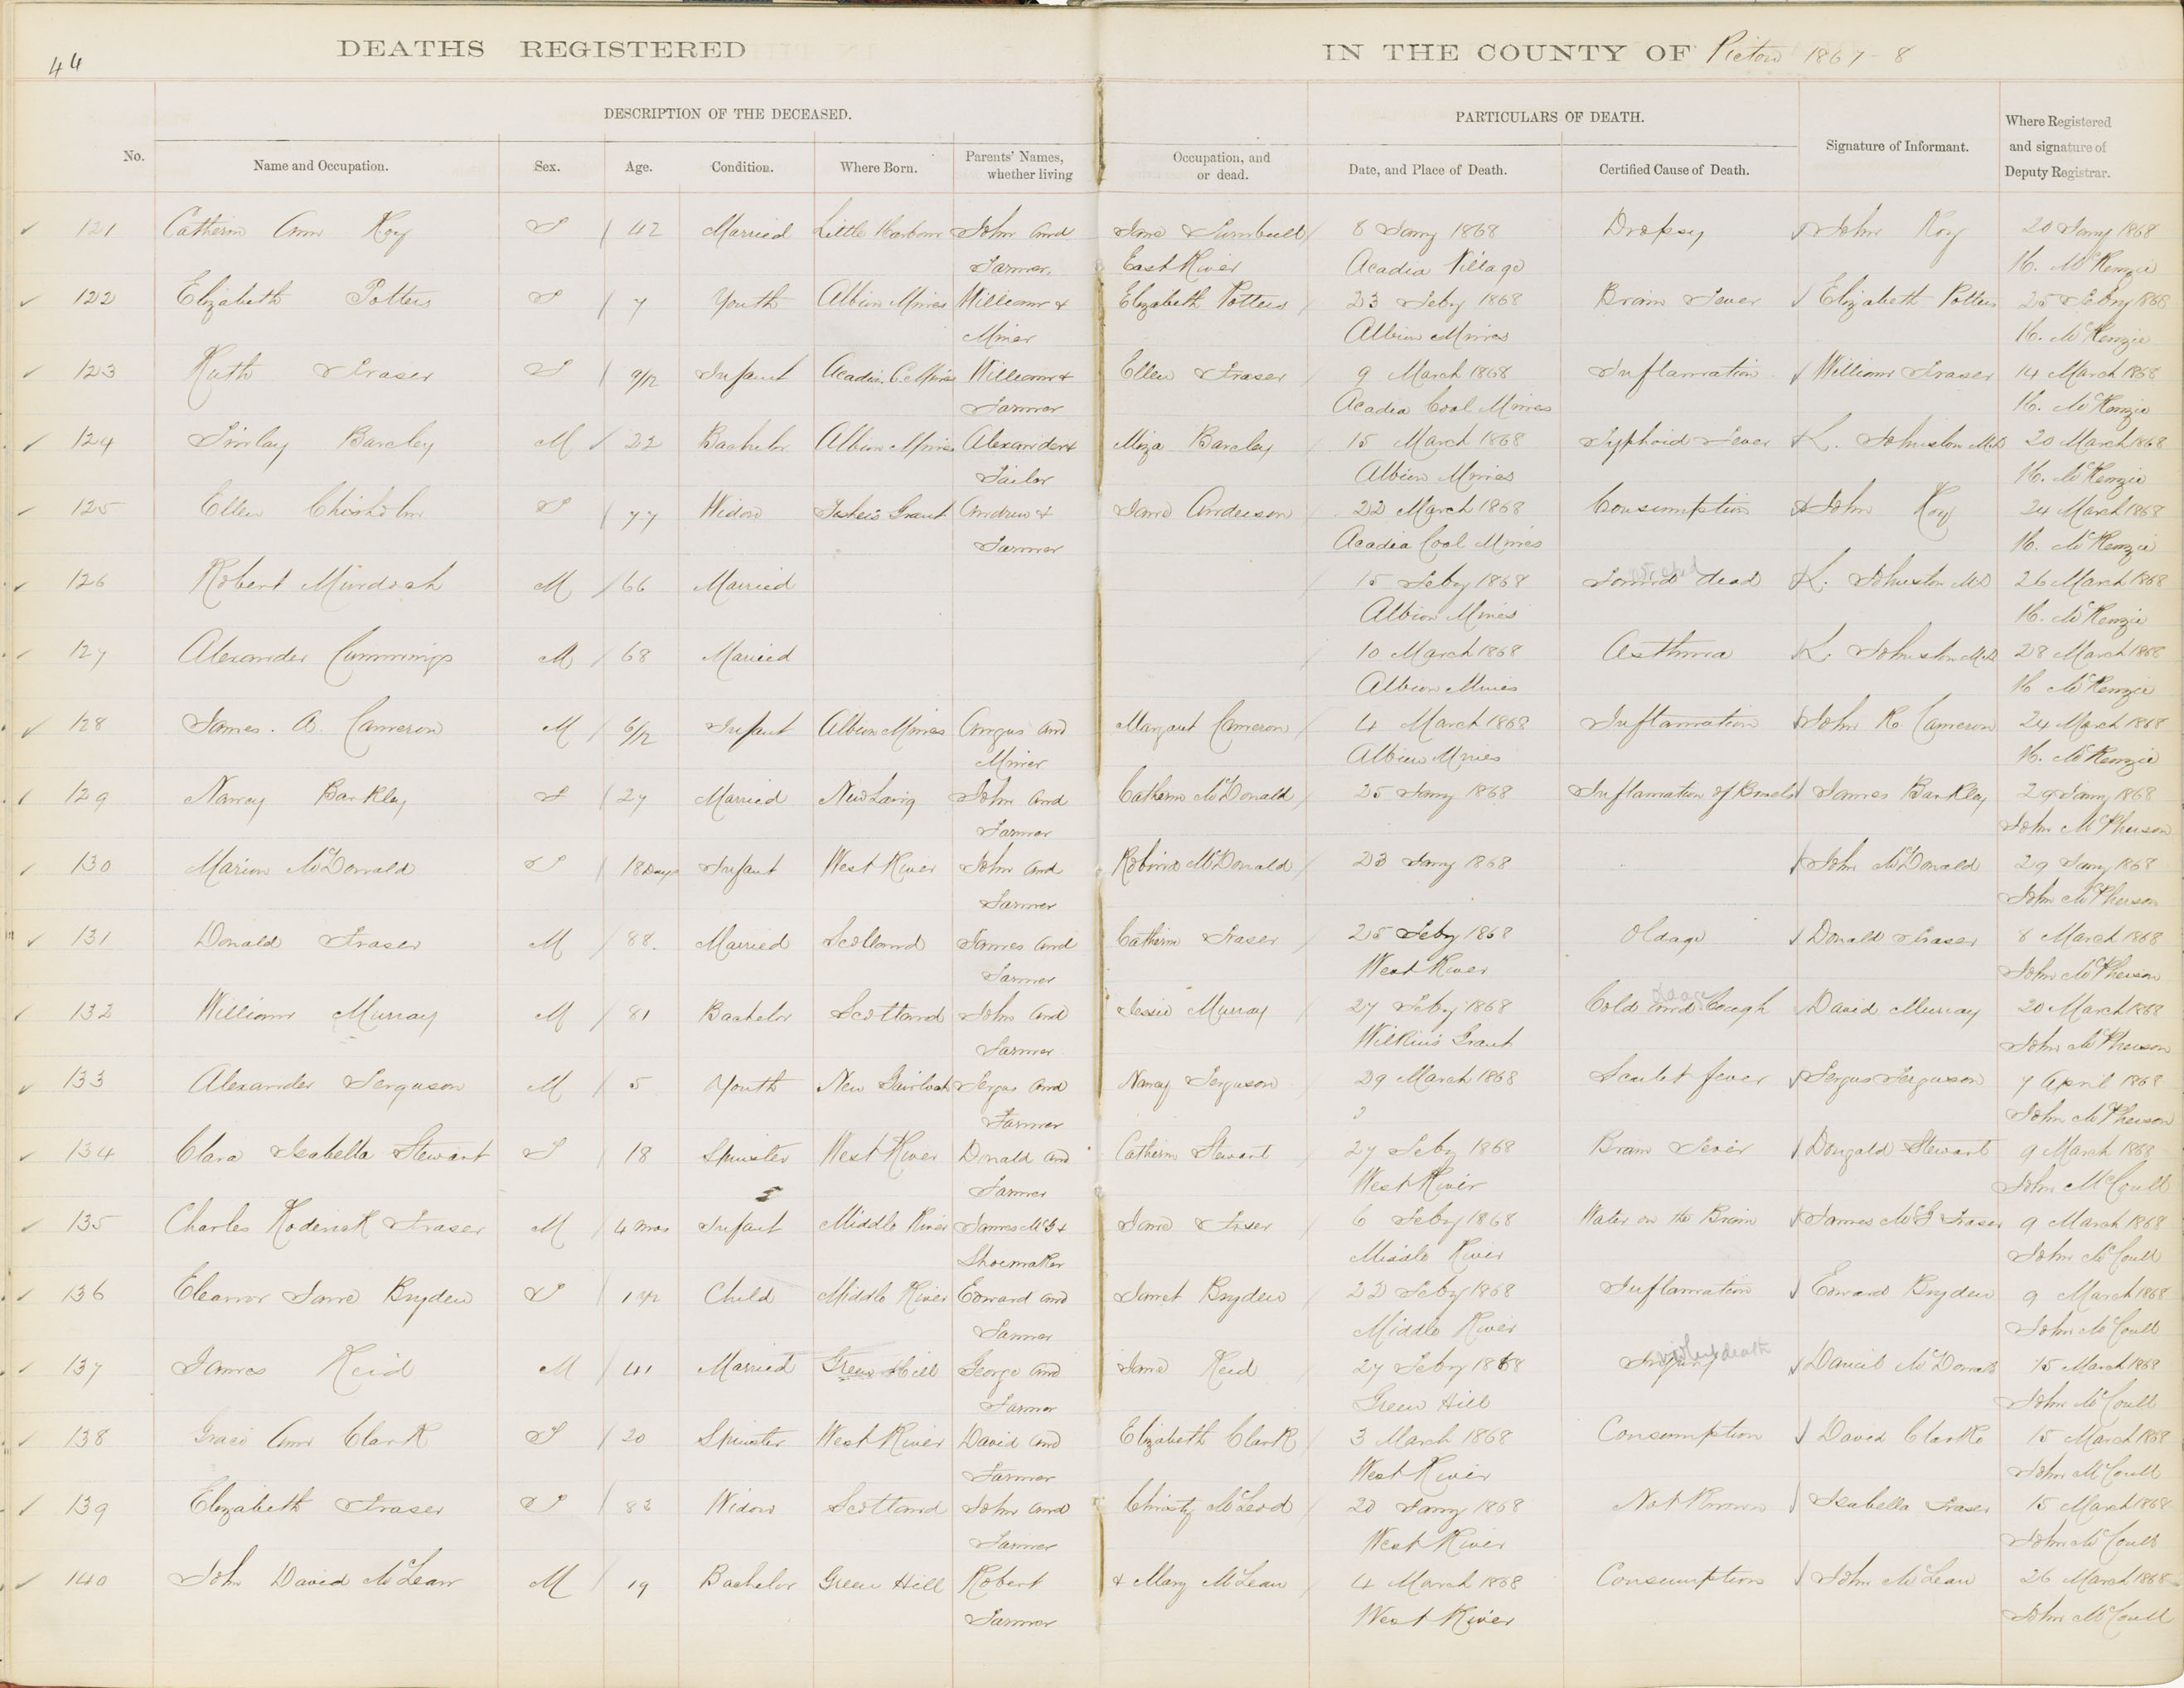 44
DEATHS REGISTERED IN THE COUNTY OF Pictou 1867-8
DESCRIPTION OF THE DECEASED. PARTICULARS OF DEATH.
No. Name and Occupation. Sex. Age. Condition. Where Born. Parents' Names, whether living Occupation, and or dead. Date, and Place of Death. Certified Cause of Death. Signature of Informant. Where Registered and signature of Deputy Registrar.
121 Catherin Ann Roy F 42 Married Little Harbour John and Jane Turnbull 8 Jany 1868 Dropsy John Roy 20 Jany 1868
Farmer East River Acadia Village H. McKenzie
122 Elizabeth Potters F 7 Youth Albion Mines William + Elizabeth Potters 23 Feby 1868 Brain Fever Elizabeth Potters 25 Febry 1868
Miner Albion Mines H. McKenzie
123 Ruth Fraser F 9/12 Infant Acadia C. Mines William + Ellen Fraser 9 March 1868 Inflamation William Fraser 14 March 1868
Farmer Acadia Coal Mines H. McKenzie
124 Finlay Barcley M 22 Bachelor Albion Mines Alexander + Miza Barcley 15 March 1868 Typhoid Fever K. Johnston MD 20 March 1868
Tailor Albion Mines H. McKenzie
125 Ellen Chisholm F 77 Widow Fishers Grant Andrew + Jane Anderson 22 March 1868 Consumption John Roy 24 March 1868
Farmer Acadia Coal Mines H. McKenzie
126 Robert Murdoch M 66 Married 15 Feby 1868 Found dead K. Johnston MD 26 March 1868
Albion Mines H. McKenzie
127 Alexander Cummings M 68 Married 10 March 1868 Asthma K. Johnston MD 28 March 1868
Albion Mines H McKenzie
128 James. A. Cameron M 6/12 Infant Albion Mines Angus and Margaret Cameron 4 March 1868 Inflamation John R Cameron 24 March 1868
Miner Albion Mines H. McKenzie
129 Nancy Barkley F 27 Married New Larig John and Catherin McDonald 25 Jany 1868 Inflamation of Bowels James Barkley 29 Jany 1868
Farmer John McPherson
130 Marion McDonald F 18 Days Infant West River John and Robina McDonald 23 Jany 1868 John McDonald 29 Jany 1868
Farmer John McPherson
131 Donald Fraser M 88. Married Scotland James and Catherin Fraser 25 Feby 1868 Oldage Donald Fraser 8 March 1868
Farmer West River John McPherson
132 William Murray M 81 Bachelor Scotland John and Jessie Murray 27 Feby 1868 Cold and Cough David Murray 20 March 1868
Farmer Wilkins Grant John McPherson
133 Alexander Ferguson M 5 Youth New Gairloch Fergus and Nancy Ferguson 29 March 1868 Scarlet fever Fergus Ferguson 7 April 1868
Farmer John McPherson
134 Clara Isabella Stewart F 18 Spinster West River Dnald and Catherin Stewart 27 Feby 1868 Brain Fever Dougald Stewart 9 March 1868
Farmer West River John McCoull
135 Charles Roderick Fraser M 4 mos Infant Middle River James McG + Jane Frser 6 Feby 1868 Water on the Brain James McG Fraser 9 March 1868
Shoemaker Middle River John McCoull
136 Eleanor Jane Bryden F 1 Child Middle River Edward and Janet Bryden 22 Feby 1868 Inflamation Edward Bryden 9 March 1868
Farmer Middle River John McCoull
137 James Reid M 41 Married Green Hill George and Jane Reid 27 Feby 1868 Injury violent death Daniel McDonald 15 March 1868
Farmer Green Hill John McCoull
138 Grace Ann Clark F 20 Spinster West River David and Elizabeth Clark 3 March 1868 Consumption David Clarke 15 March 1868
Farmer West River John McCoull
139 Elizabeth Fraser F 83 Widow Scotland John and Christy McLeod 20 Jany 1868 Not Known Isabella Fraser 15 March 1868
Farmer West River John McCoull
140 John David McLean M 19 Bachelor Green Hill Robert + Mary McLean 4 March 1868 Consumption John McLean 26 March 1868
Farmer West River John McCoull